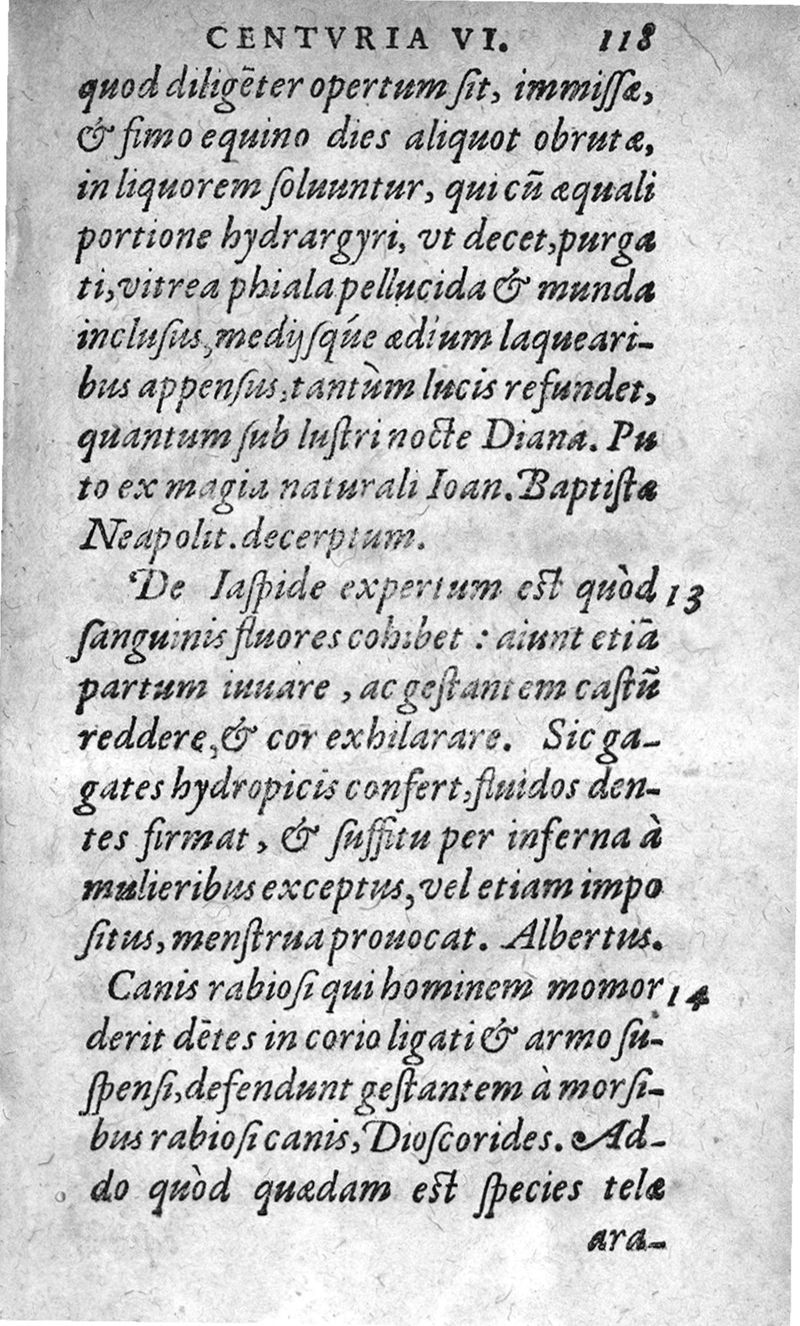 CENTVRIA VI. 118
quod diligēter opertum ſit, immiſſæ,
& fimo equino dies aliquot obrutæ,
in liquorem ſoluuntur, qui cū æquali
portione hydrargyri, vt decet, purga
ti, vitrea phiala pellucida & munda
incluſus, medijſq́ue ædium laqueari-
bus appenſus, tantùm lucis refundet,
quantum ſub luſtri nocte Diana. Pu
to ex magia naturali Ioan. Baptiſtæ
Neapolit. decerptum.
De Iaſpide expertum est quòd 13
ſanguinis fluores cohibet : aiunt etiā
partum iuuare , ac geſtantem caſtū
reddere, & cor exhilarare. Sic ga-
gates hydropicis confert, fluidos den-
tes firmat , & ſuffitu per inferna à
mulieribus exceptus, vel etiam impo
ſitus, menſtrua prouocat. Albertus.
Canis rabioſi qui hominem momor 14
derit dētes in corio ligati & armo ſu-
ſpenſi, defendunt geſtantem à morſi-
bus rabioſi canis, Dioſcorides. Ad-
do quòd quædam est ſpecies telæ
ara-